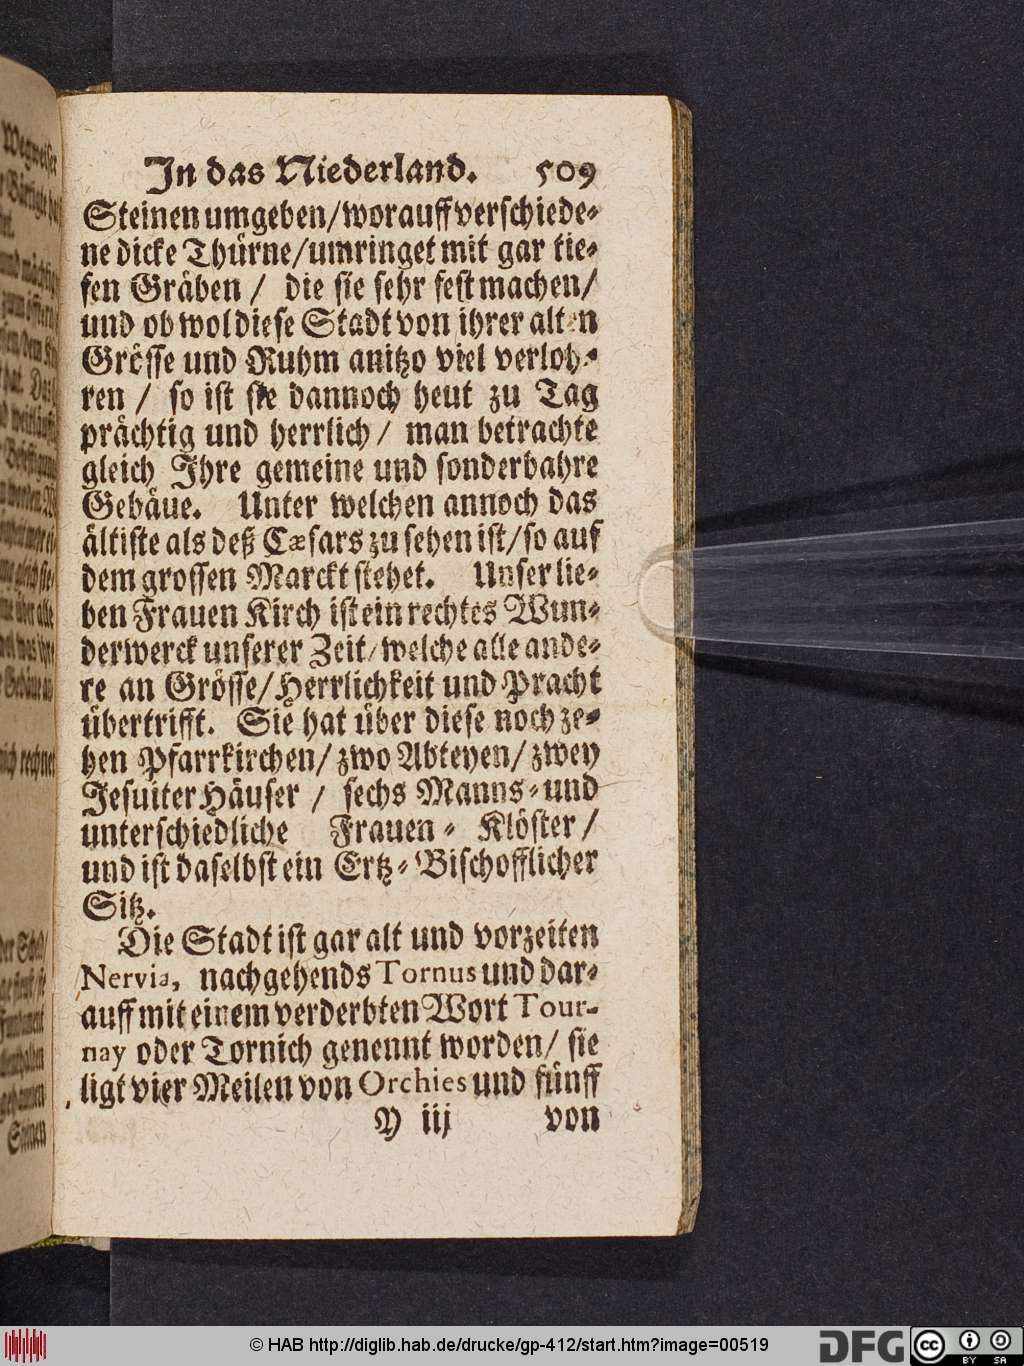 In das Niederland. 509
Steinen umgeben/ worauff verschiede-
ne dicke Thürne/ umringet mit gar tie-
fen Gräben / die sie sehr fest machen/
und ob wol diese Stadt von ihrer alten
Grösse und Ruhm anitzo viel verloh-
ren / so ist sie dannoch heut zu Tag
prächtig und herrlich / man betrachte
gleich Ihre gemeine und sonderbahre
Gebäue. Unter welchen annoch das
ältiste als deß Cæsars zu sehen ist/ so auf
dem grossen Marckt stehet. Unser lie-
ben Frauen Kirch ist ein rechtes Wun-
derwerck unserer Zeit/ welche alle ande-
re an Grösse/ Herrlichkeit und Pracht
übertrifft. Sie hat über diese noch ze-
hen Pfarrkirchen/ zwo Abteyen/ zwey
Jesuiter Häuser / sechs Manns- und
unterschiedliche Frauen- Klöster /
und ist daselbst ein Ertz- Bischofflicher
Sitz.
Die Stadt ist gar alt und vorzeiten
Nervia, nachgehends Tornus und dar-
auff mit einem verderbten Wort Tour-
nay oder Tornich genennt worden/ sie
ligt vier Meilen von Orchies und fünff
Y iij von
© HAB http://diglib.hab.de/drucke/gp-412/start.htm?image=00519
DFG
cc
BY SA